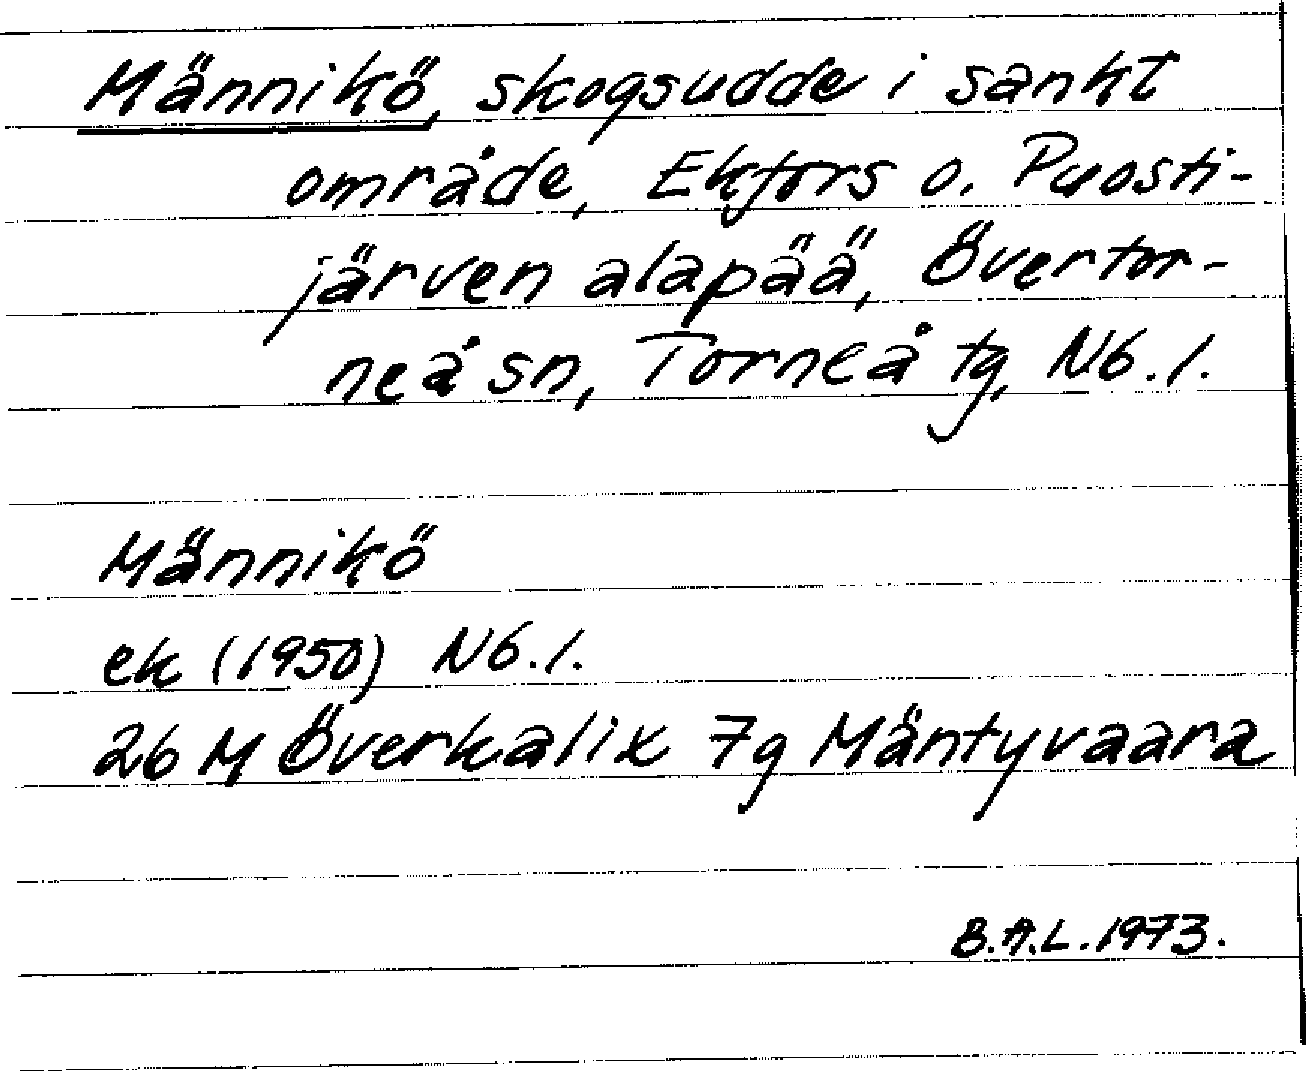 Männikö, skogsudde i sankt
område, Ekfors o. Puosti-
järven alapää, Övertor-
neå sn, Torneå tg, Nb. l.
Männikö
ek (1950) Nb. l.
26 M Överkalix 7g Mäntyvaara
B.A.L. 1973.